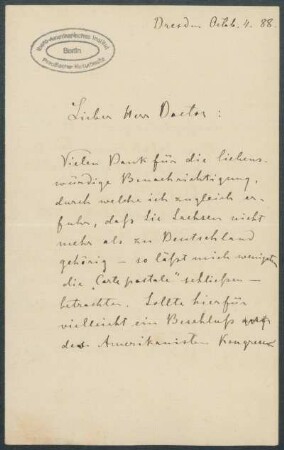 Ibero-Amerikanisches Institut
Berlin
Preußischer Kulturbesitz
Dresden Octb. 4. 88.
Lieber Herr Doctor:
Vielen Dank für die liebens-
würdige Benachrichtigung,
durch welche ich zugleich er-
fuhr, daß Sie Sachsen nicht
mehr als zu Deutschland
gehörig – so läßt mich wenigstens
die „Carte postale" schließen –
betrachten. Sollte hierfür
vielleicht ein Beschluß
des Amerikanisten Kongress